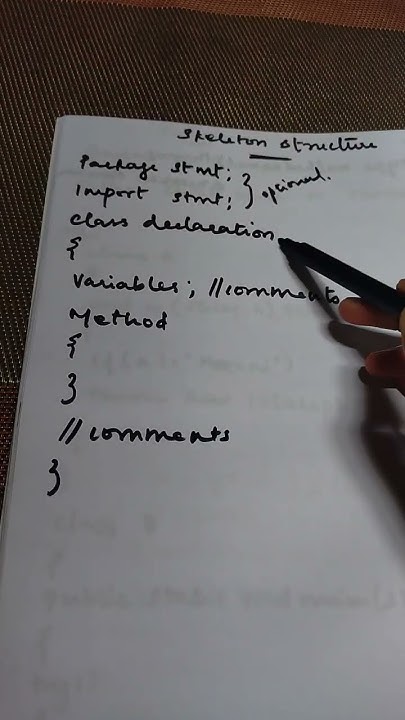 Skeleton structure
Package stmt;
Import stmt; } optional.
class declaration
{
Variables; //comments
Method
{
}
//comments
}